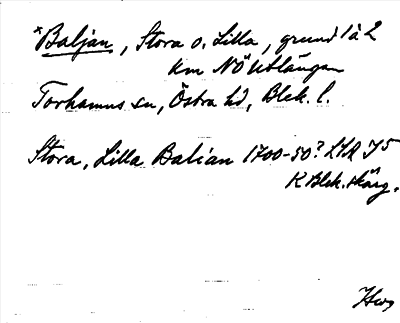 *Baljan, Stora o. Lilla, grund 1 à 2
km NÖ Utlängan
Torhamns sn, Östra hd, Blek. l.
Stora, Lilla Balian 1700-50? LSA J5
K Blek. skärg.